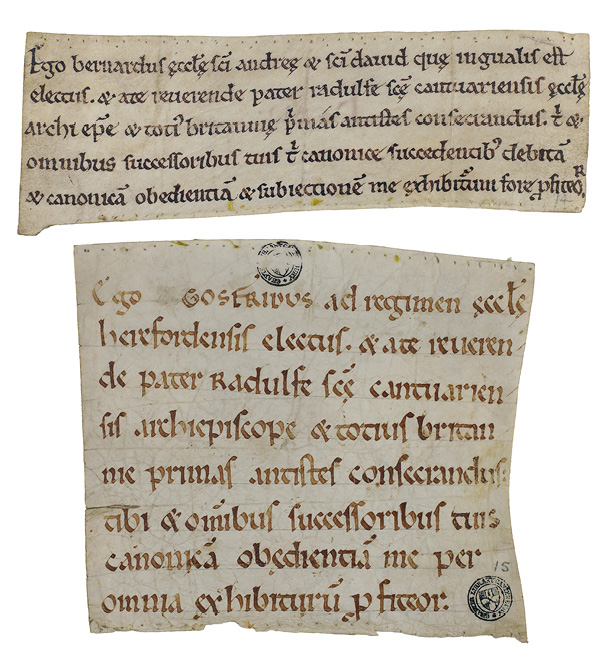 Ego bernardus ęcclę sci andreę & sci dauid quę in gualis est
electus. & a te reuerende pater radulfe scę cantuariensis ęcclę
archi epe & toti' britannię p'mas antistes consecrandus. t' &
omnibus successoribus tuis t' canonice succedentib' debitā
& canonicā obedientiā & subiectionē me exhibitum fore pfiteor
14
Ego GOSFRIDUS ad regimen ęcclę
herefordensis electus. & a te reueren
de pater Radulfe scę cantuarien
sis archiepiscope & totius britan
nie primas antistes consecrandus:
tibi & omībus successoribus tuis
canonicā obędientiā me per
omnia exhibiturū pfiteor.
15